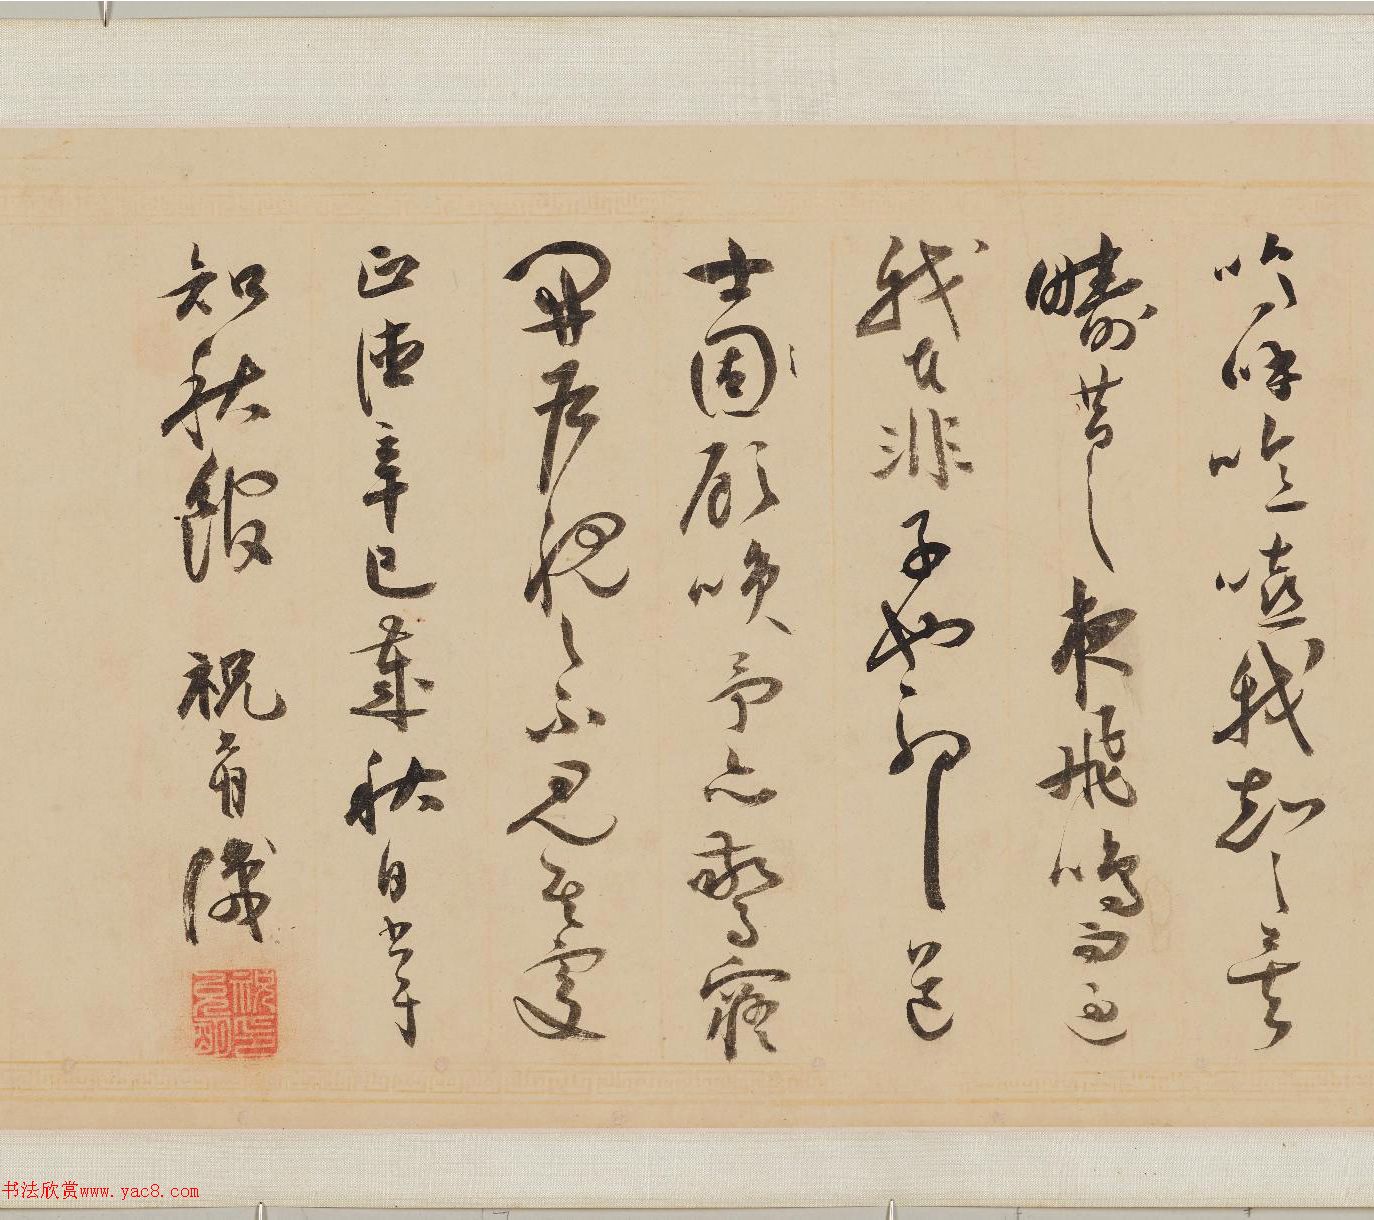 嗚呼噫嘻我知之矣
疇昔之夜飛鳴而過
我者非子也耶道
士因顧咲予亦驚寤
開戶視之不見其處
正德辛巳歲秋日書于
知秋館 祝允明識
书法欣赏www.yac8.com